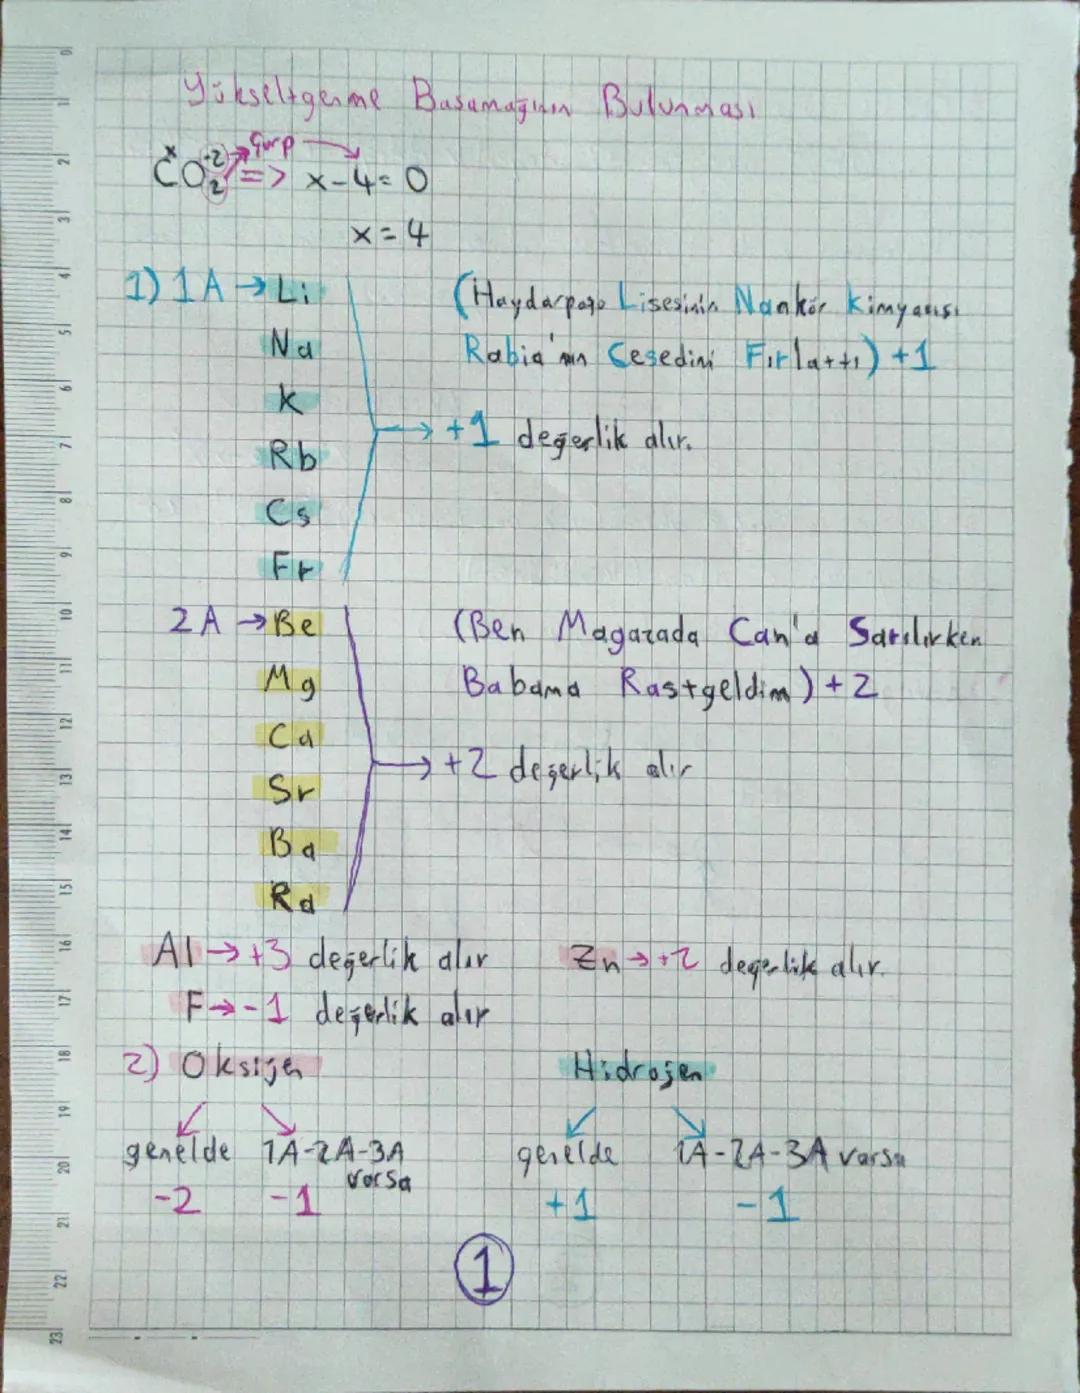 Yükseltgenme Basamağının Bulunması
x -2 Çarp
CO2 => x-4=0
x=4
1) 1A → Li (Haydarpaşa Lisesinin Nankör Kimyacısı
Na Rabia'nın Cesedini Fırlattı) +1
K
→ +1 değerlik alır.
Rb
Cs
Fr
2A → Be (Ben Magarada Can'a Sarılırken
Mg Babama Rastgeldim) +2
Ca
→ +2 değerlik alır
Sr
Ba
Ra
Al → +3 değerlik alır Zn → +2 değerlik alır.
F → -1 değerlik alır
2) Oksijen Hidrojen
genelde 1A-2A-3A varsa genelde 1A-2A-3A varsa
-2 -1 +1 -1
1
0 1 2 3 4 5 6 7 8 9 10 11 12 13 14 15 16 17 18 19 20 21 22 23